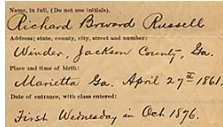 Name, in full, (Do not use initials).
Richard Brevard Russell
Address; state, county, city, street and number:
Winder, Jackson County, Ga.
Place and time of birth:
Marietta Ga. April 27th 1861.
Date of entrance, with class entered:
First Wednesday in Oct 1876.